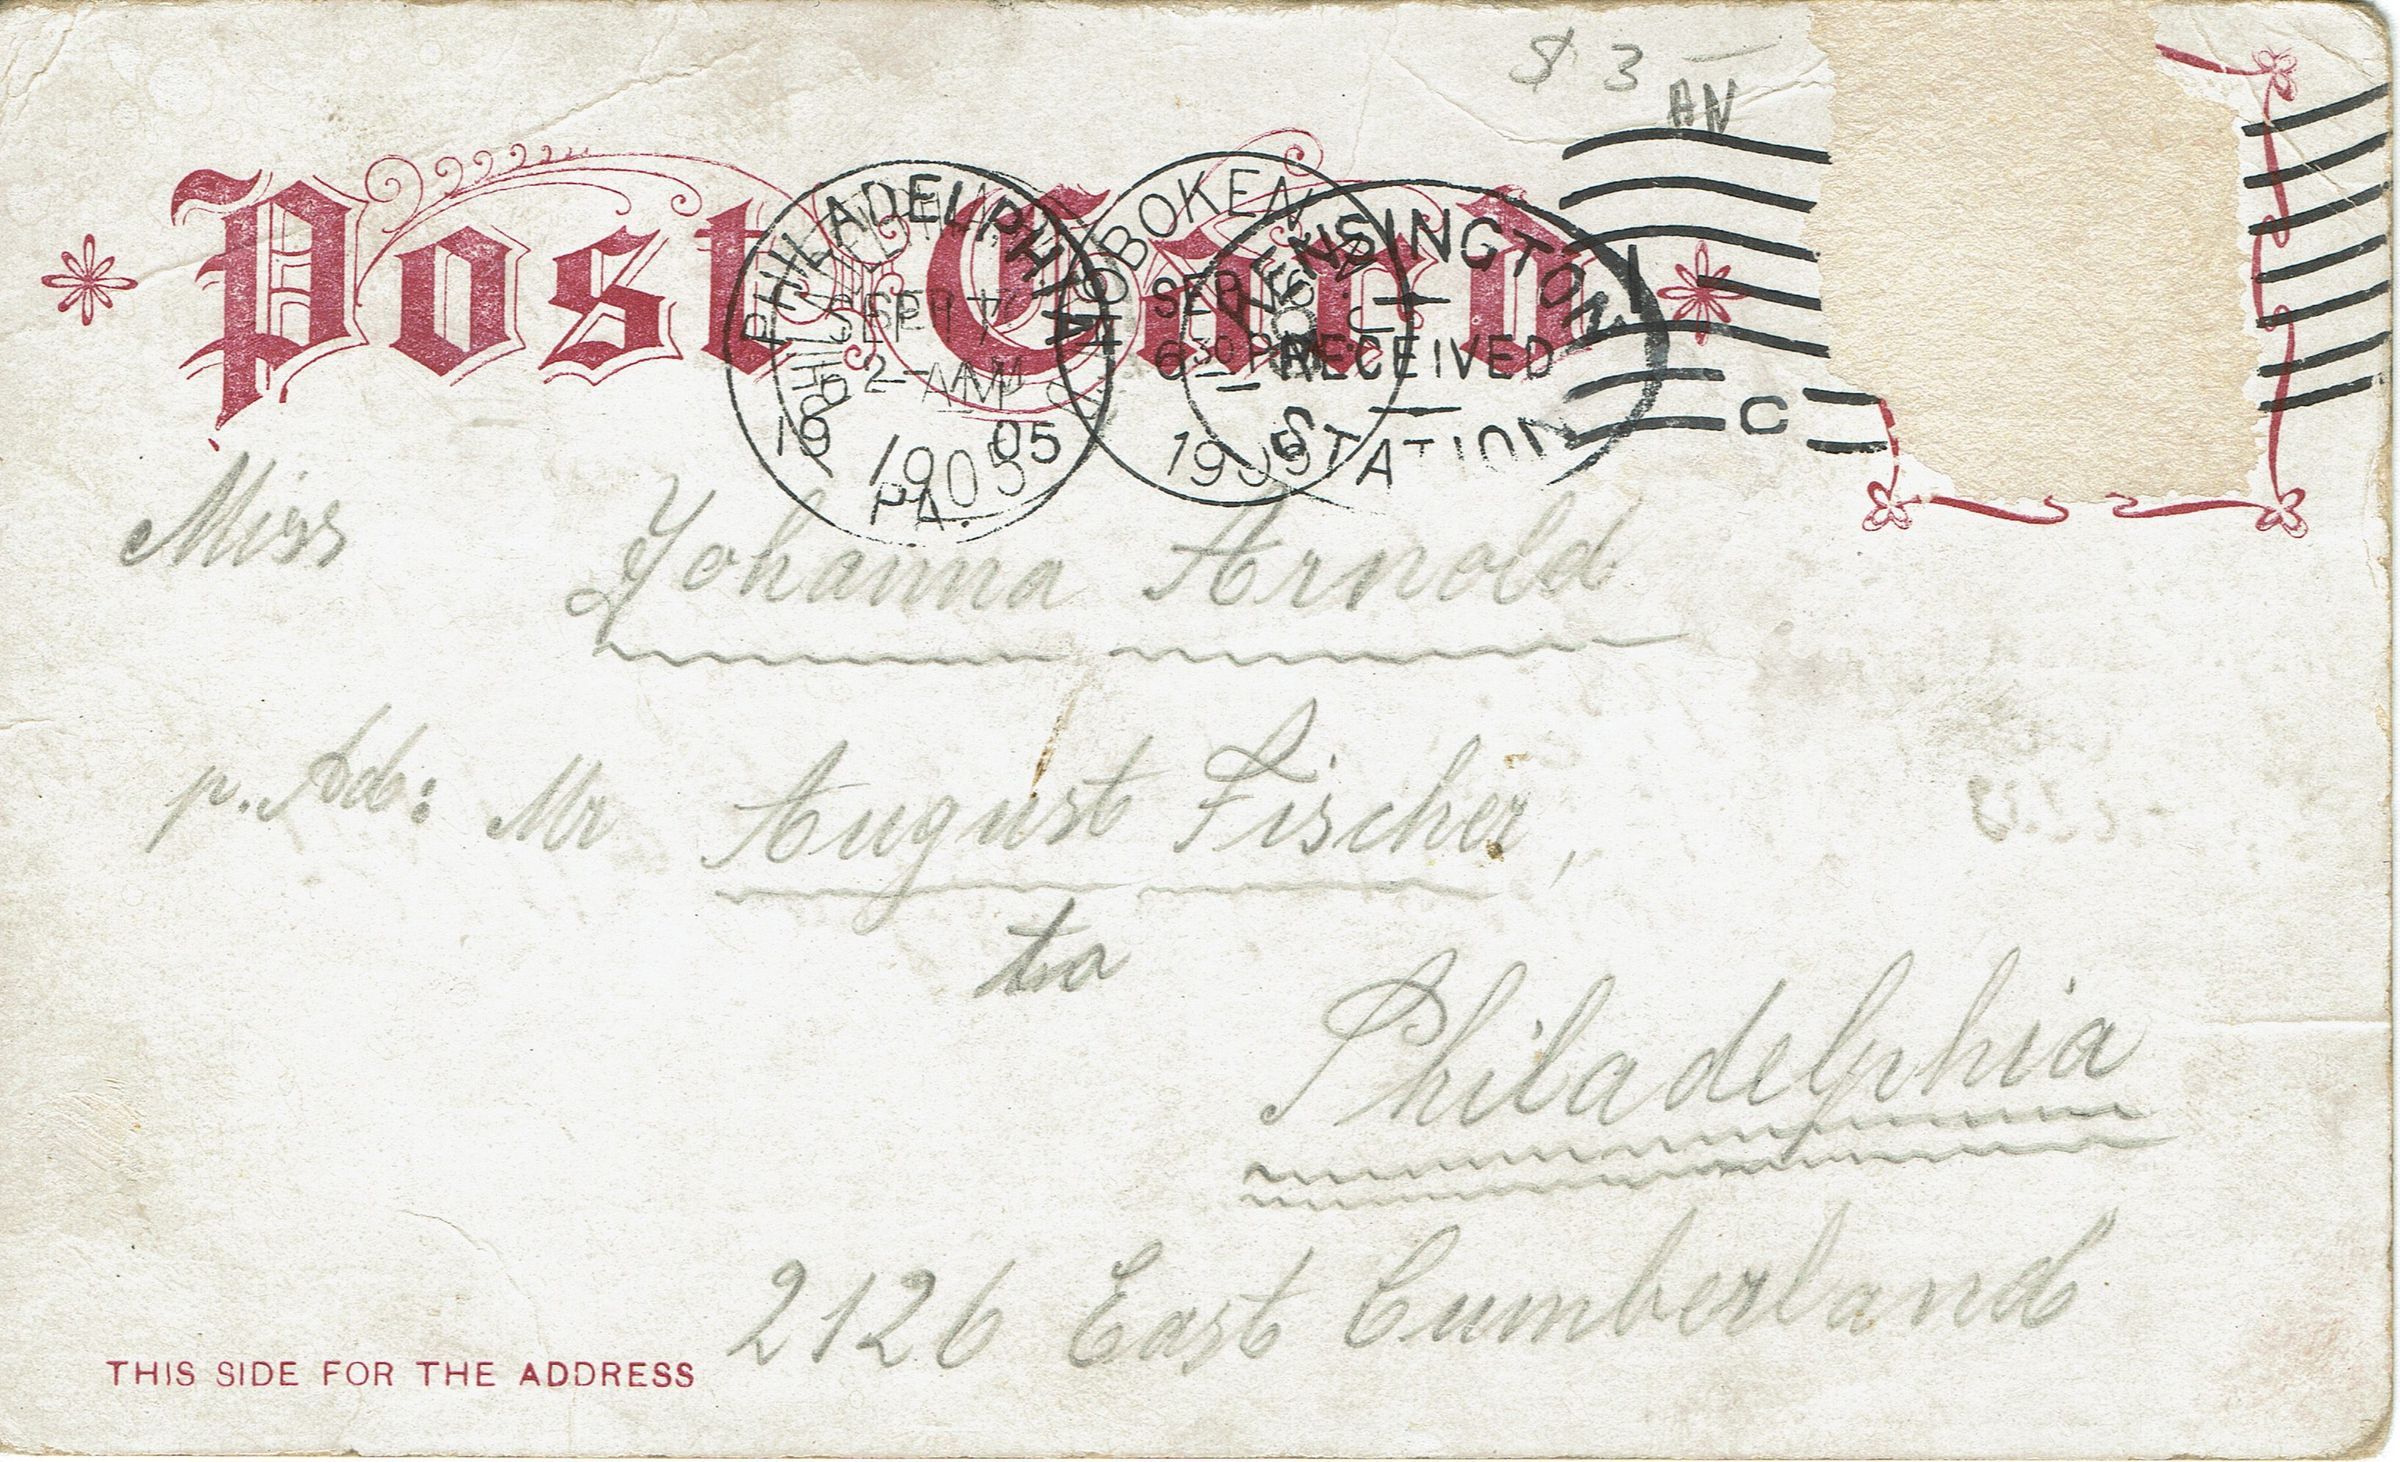 $ 3 —
AN
Post Card
PHILADELPHIA
SEP 17
2-AM
1905
PA.
HOBOKEN
SEP 16
6 30 P
1905
KENSINGTON
RECEIVED
STATION
C
Miss Johanna Arnold
p. Ad: Mr August Fischer,
to
Philadelphia
2126 East Cumberland
THIS SIDE FOR THE ADDRESS